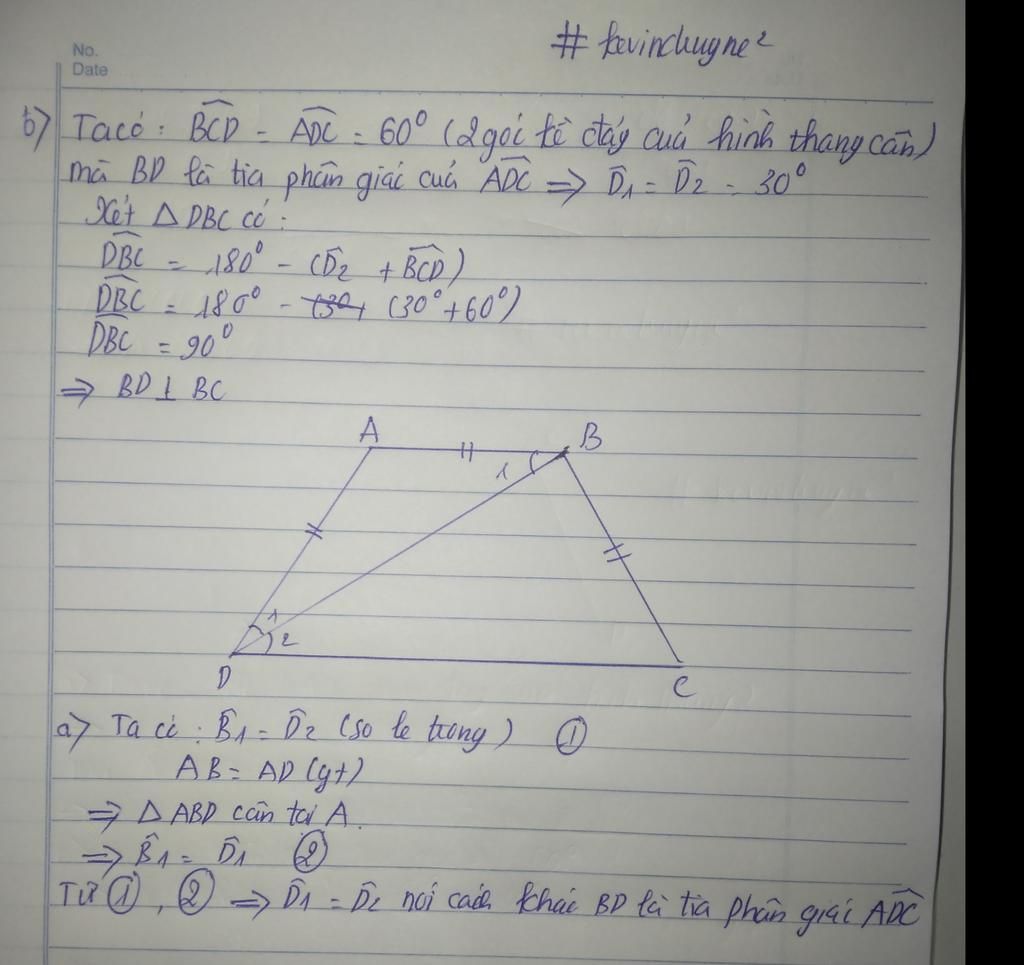 # kevinchugne²
No.
Date
b) Ta có : BCD̂ = ADĈ = 60° (2 góc kề đáy cuả hình thang cân)
mà BD là tia phân giác cuả ADĈ => D̂1 = D̂2 = 30°
Xét △ DBC có :
DBĈ = 180° - (D̂2 + BCD̂)
DBĈ = 180° - (30+ (30° + 60°)
DBĈ = 90°
=> BD ⊥ BC
A
B
1
1
2
D
C
a) Ta có : B̂1 = D̂2 (so le trong) ①
AB = AD (gt)
=> △ ABD cân tại A.
=> B̂1 = D̂1 ②
Từ ①, ② => D̂1 = D̂2 nói cách khác BD là tia phân giác ADĈ